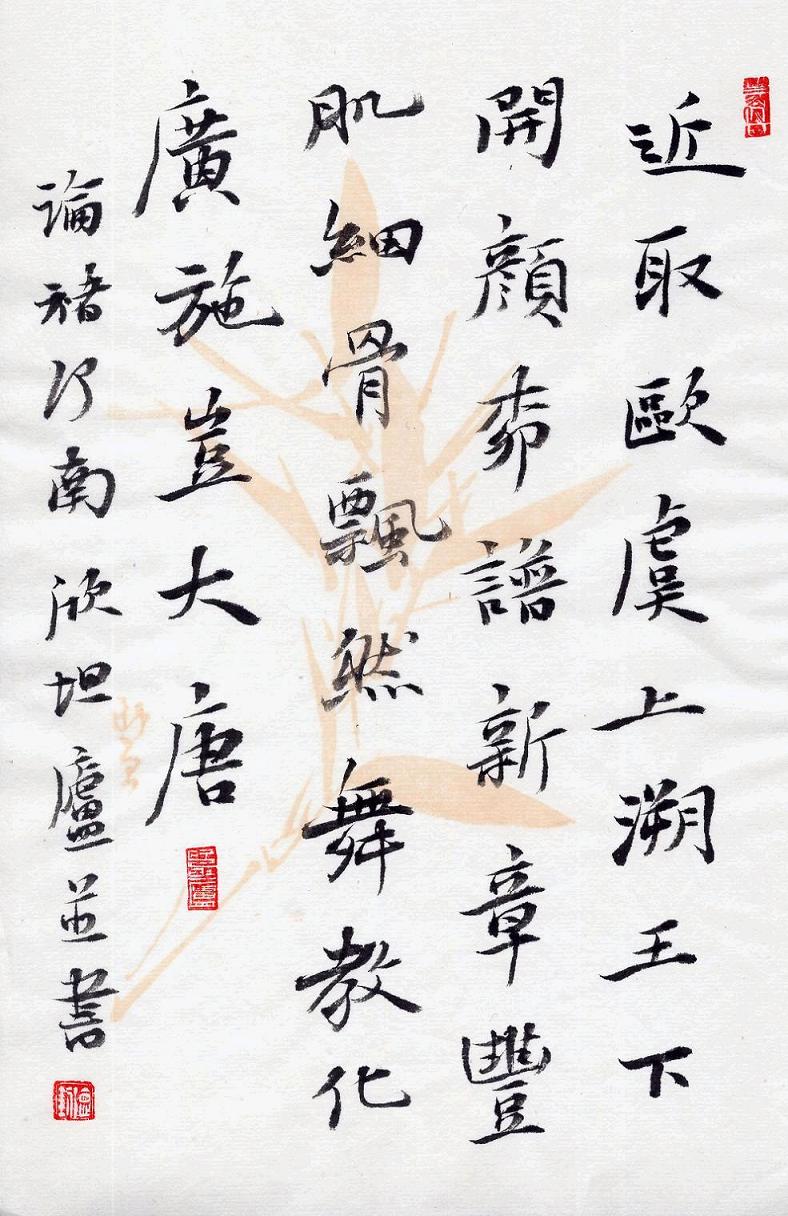 近取歐虞上溯王下
開顏桺譜新章豐
肌細骨飄然舞教化
廣施豈大唐
論褚河南欣坦廬並書